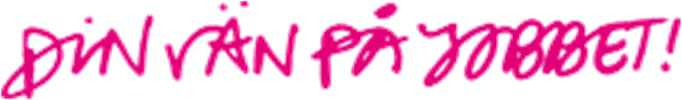 DIN VÄN PÅ JOBBET!